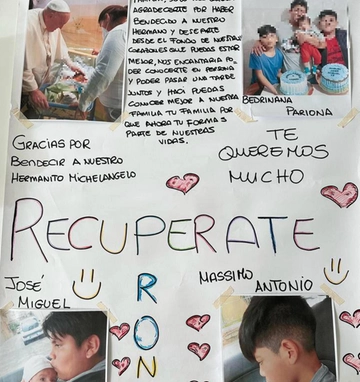 AGRADECERTE POR HABER
BENDECIDO A NUESTRO
HERMANO Y DESEARTE
DESDE EL FONDO DE NUESTROS
CORAZONES QUE PUEDAS ESTAR
MEJOR, NOS ENCANTARIA PO
DER CONOCERTE EN PERSONA
Y PODER PASAR UNA TARDE
JUNTOS Y HACI PUEDAS
CONOCER MEJOR A NUESTRA
FAMILIA TU FAMILIA POR
QUE AHORA TU FORMAS
PARTE DE NUESTRAS
VIDAS.
BEDRINANA
PARIONA
GRACIAS POR
BENDECIR A NUESTRO
HERMANITO MICHELANGELO
TE
QUEREMOS
MUCHO
RECUPERATE
PRON
JOSÉ
MIGUEL
MASSIMO
ANTONIO